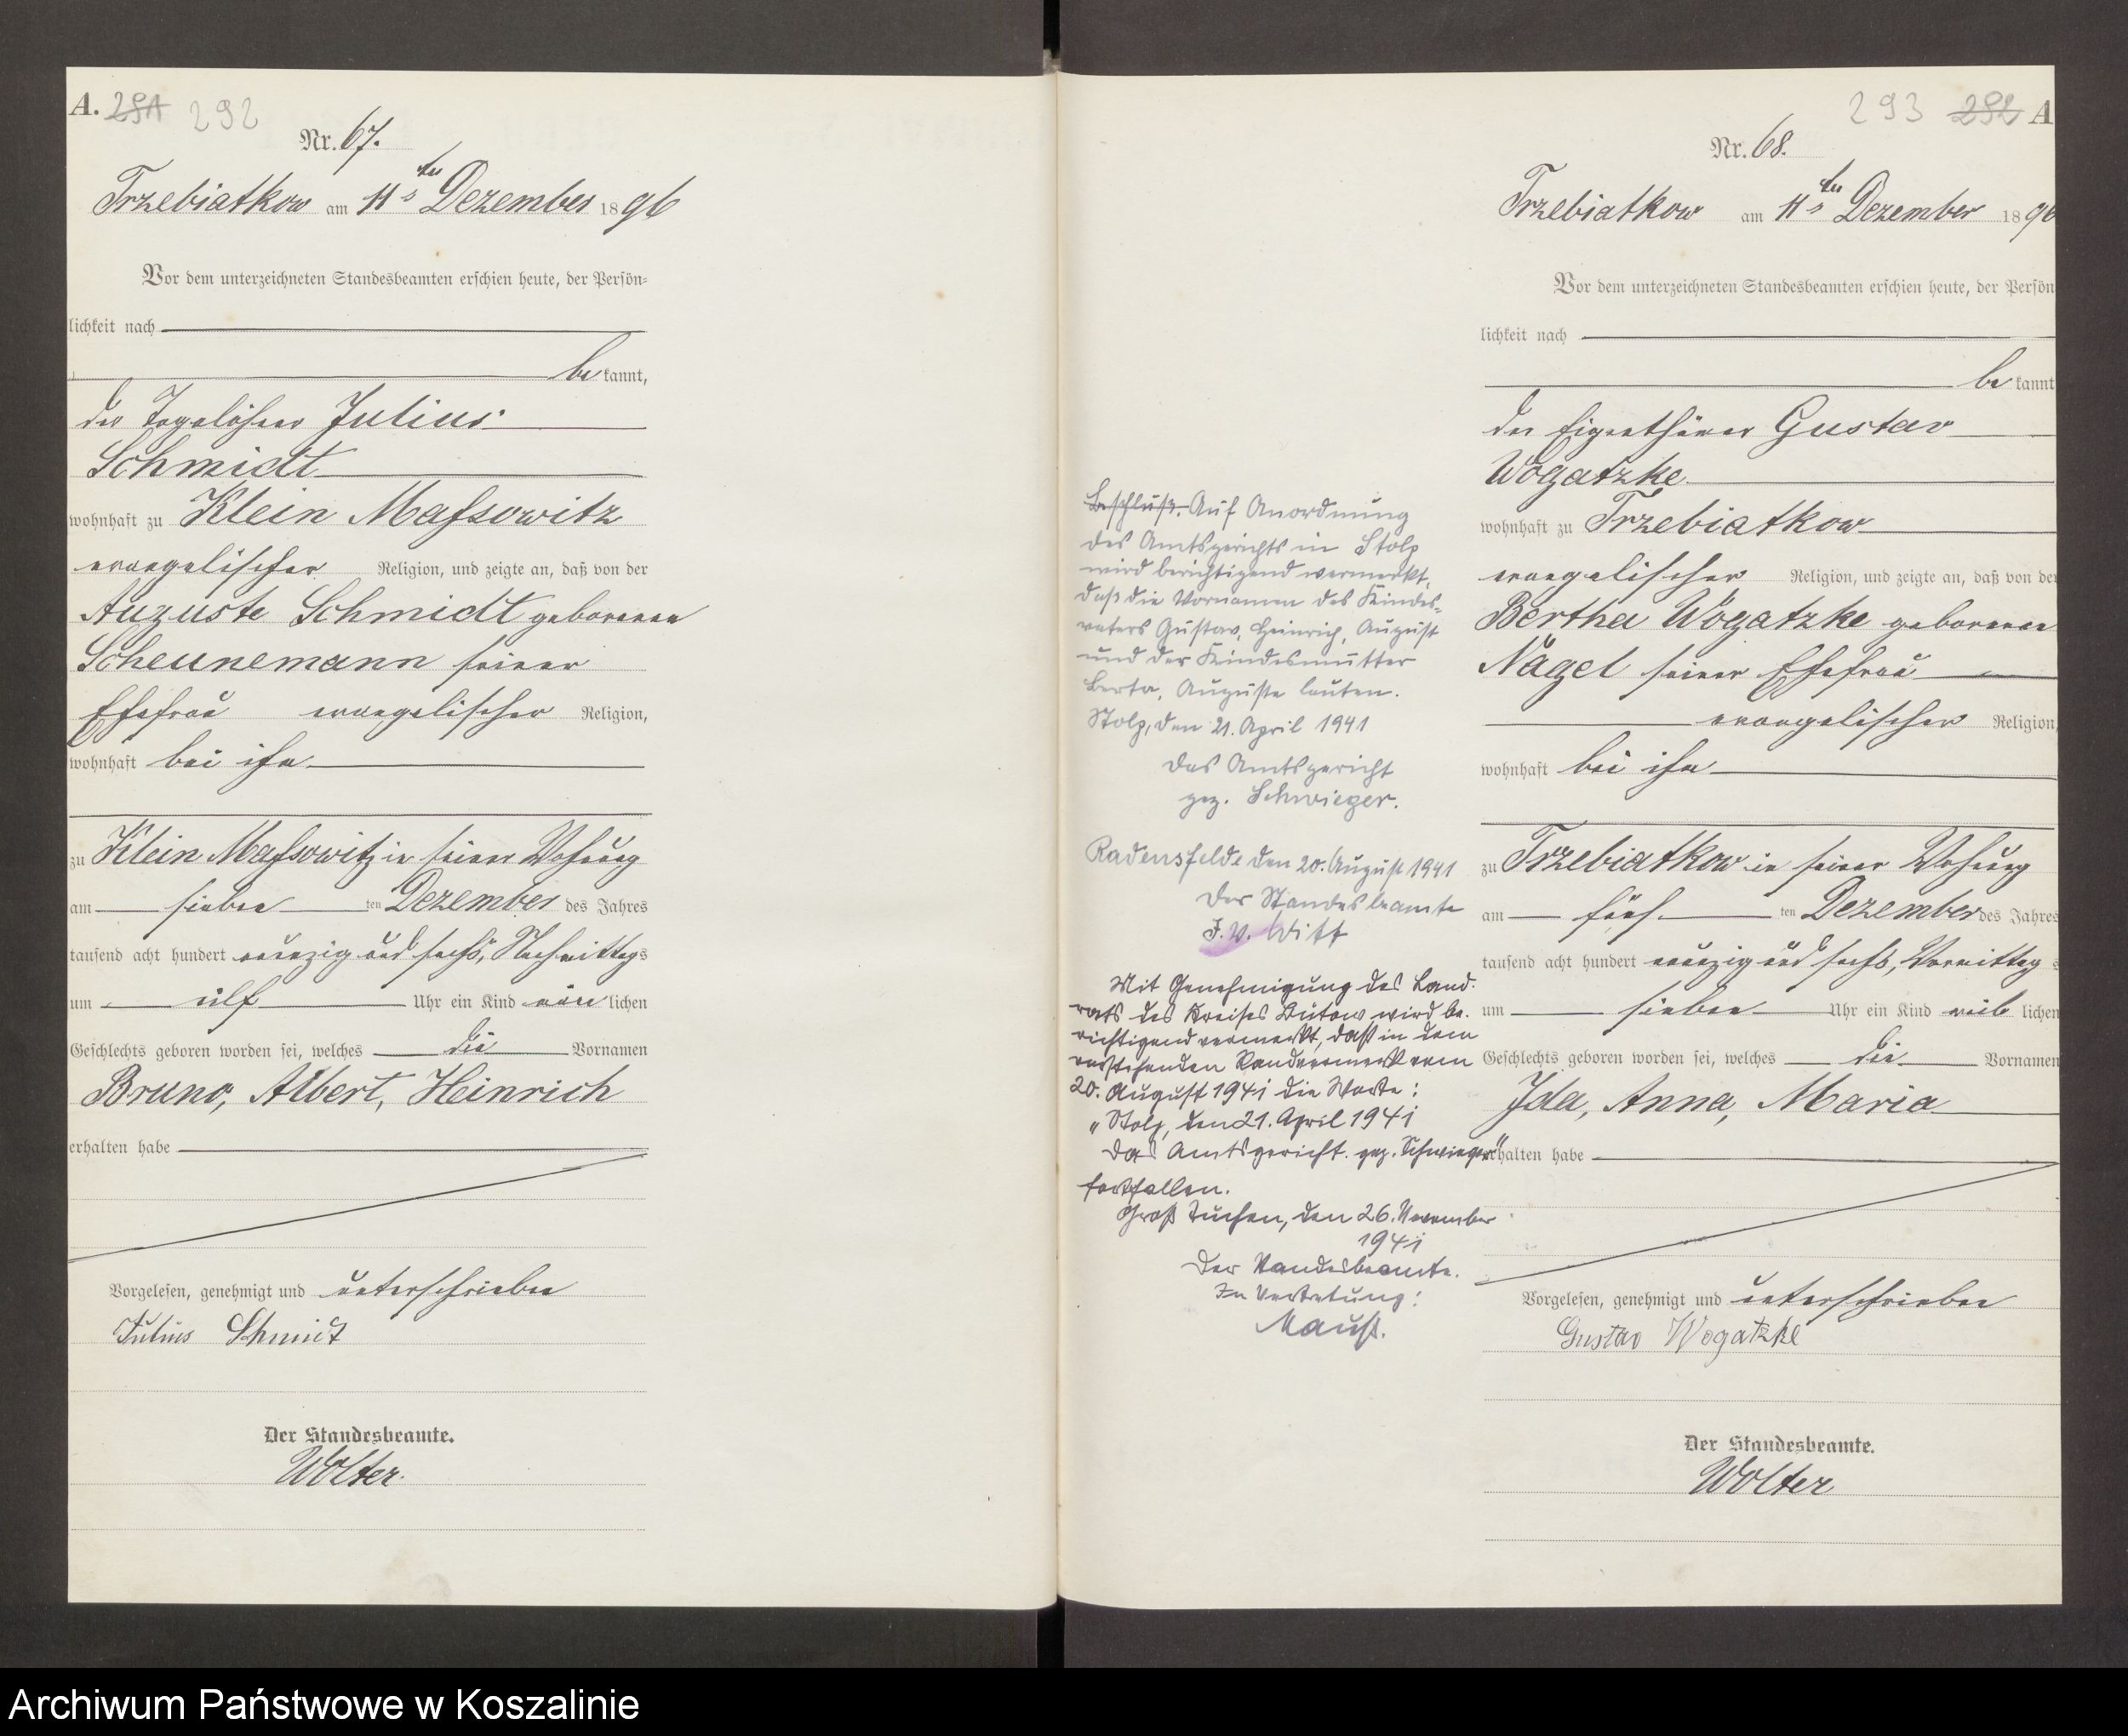 A. 291 292
Nr. 67.
Trzebiatkow am 11ten Dezember 1896
Vor dem unterzeichneten Standesbeamten erschien heute, der Persön-
lichkeit nach
be kannt,
der Tagelöhner Julius
Schmidt
wohnhaft zu Klein Massowitz
evangelischer Religion, und zeigte an, daß von der
Auguste Schmidt geborenen
Scheunemann seiner
Ehefrau evangelischer Religion,
wohnhaft bei ihm
zu Klein Massowitz in seiner Wohnung
am sieben ten Dezember des Jahres
tausend acht hundert neunzig und sechs, Nachmittags
um elf Uhr ein Kind männlichen
Geschlechts geboren worden sei, welches die Vornamen
Bruno, Albert, Heinrich
erhalten habe
Vorgelesen, genehmigt und unterschrieben
Julius Schmidt
Der Standesbeamte.
Wolter.
293 292 A
Nr. 68.
Trzebiatkow am 11ten Dezember 1896
Vor dem unterzeichneten Standesbeamten erschien heute, der Persön
lichkeit nach
be kannt
der Eigenthümer Gustav
Wögatzke
wohnhaft zu Trzebiatkow
evangelischer Religion, und zeigte an, daß von der
Bertha Wögatzke geborenen
Nagel seiner Ehefrau
evangelischer Religion,
wohnhaft bei ihm
zu Trzebiatkow in seiner Wohnung
am fünf ten Dezember des Jahres
tausend acht hundert neunzig und sechs, Vormittag s
um sieben Uhr ein Kind weib lichen
Geschlechts geboren worden sei, welches die Vornamen
Ida, Anna, Maria
erhalten habe
Vorgelesen, genehmigt und unterschrieben
Gustav Wogatzke
Der Standesbeamte.
Wolter
Beschluß. Auf Anordnung
des Amtsgerichts in Stolp
wird berichtigend vermerkt,
daß die Vornamen des Kindes-
vaters Gustav, Heinrich, August
und der Kindesmutter
Berta, Auguste lauten.
Stolp, den 21. April 1941
Das Amtsgericht
gez. Schwieger.
Radensfelde den 20. August 1941
Der Standesbeamte
I.V. Witt
Mit Genehmigung des Land-
rats des Kreises Bütow wird be-
richtigend vermerkt, daß in dem
vorstehenden Randvermerk vom
20. August 1941 die Worte:
"Stolp, den 21. April 1941
Das Amtsgericht. gez. Schwieger"
fortfallen.
Groß Tuchen, den 26. November
1941
Der Standesbeamte.
In Vertretung:
Mauß.
Archiwum Państwowe w Koszalinie